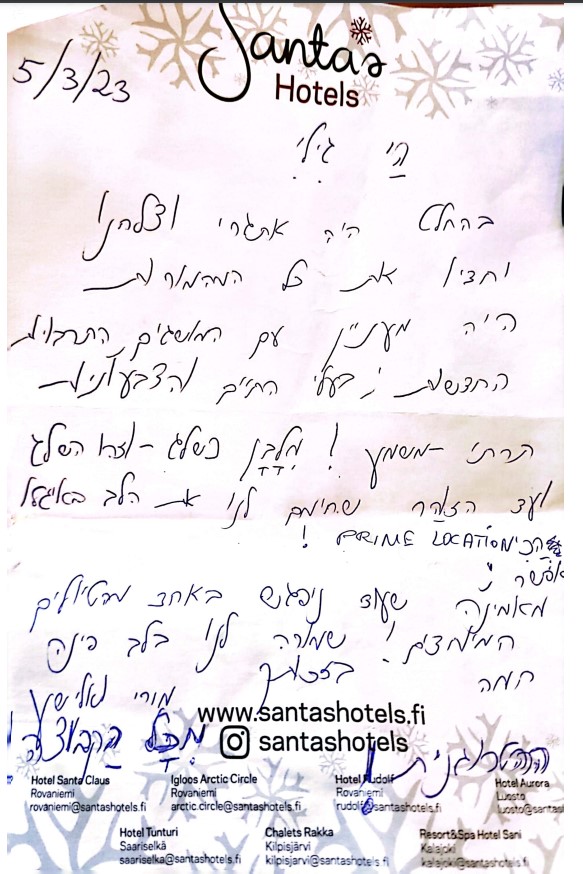 Santa's
Hotels
5/3/23
היי גילי
בהחלט היה אתגרי וצלחנו
וחצינו את כל המהמורות
היה מעניין עם המושגים התרבות
החדשות, בעלי החיים והצבעוניות
תרתי - משמע! מלבן כשלג - השלג
ועד הזוהר שחימם לנו את הלב באיגלו
הכי PRIME LOCATION
אפשרי!
מאמינה שעוד ניפגש באחד מטיולים
המאולצים! שמורה לנו בלב פינה
חמה בזכותך
מורי
מכל הקבוצה
ההטרוגנית
www.santashotels.fi
santashotels
Hotel Santa Claus
Rovaniemi
rovaniemi@santashotels.fi
Igloos Arctic Circle
Rovaniemi
arctic.circle@santashotels.fi
Hotel Rudolf
Rovaniemi
rudolf@santashotels.fi
Hotel Aurora
Luosto
luosto@santas
Hotel Tunturi
Saariselkä
saariselka@santashotels.fi
Chalets Rakka
Kilpisjärvi
kilpisjarvi@santashotels.fi
Resort&Spa Hotel Sani
Kalajoki
kalajoki@santashotels.fi